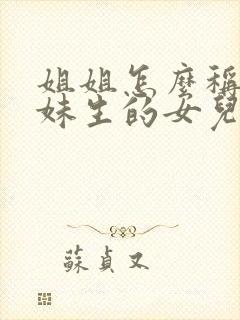 姐姐怎麼稱
妹生的女兒
蘇貞又